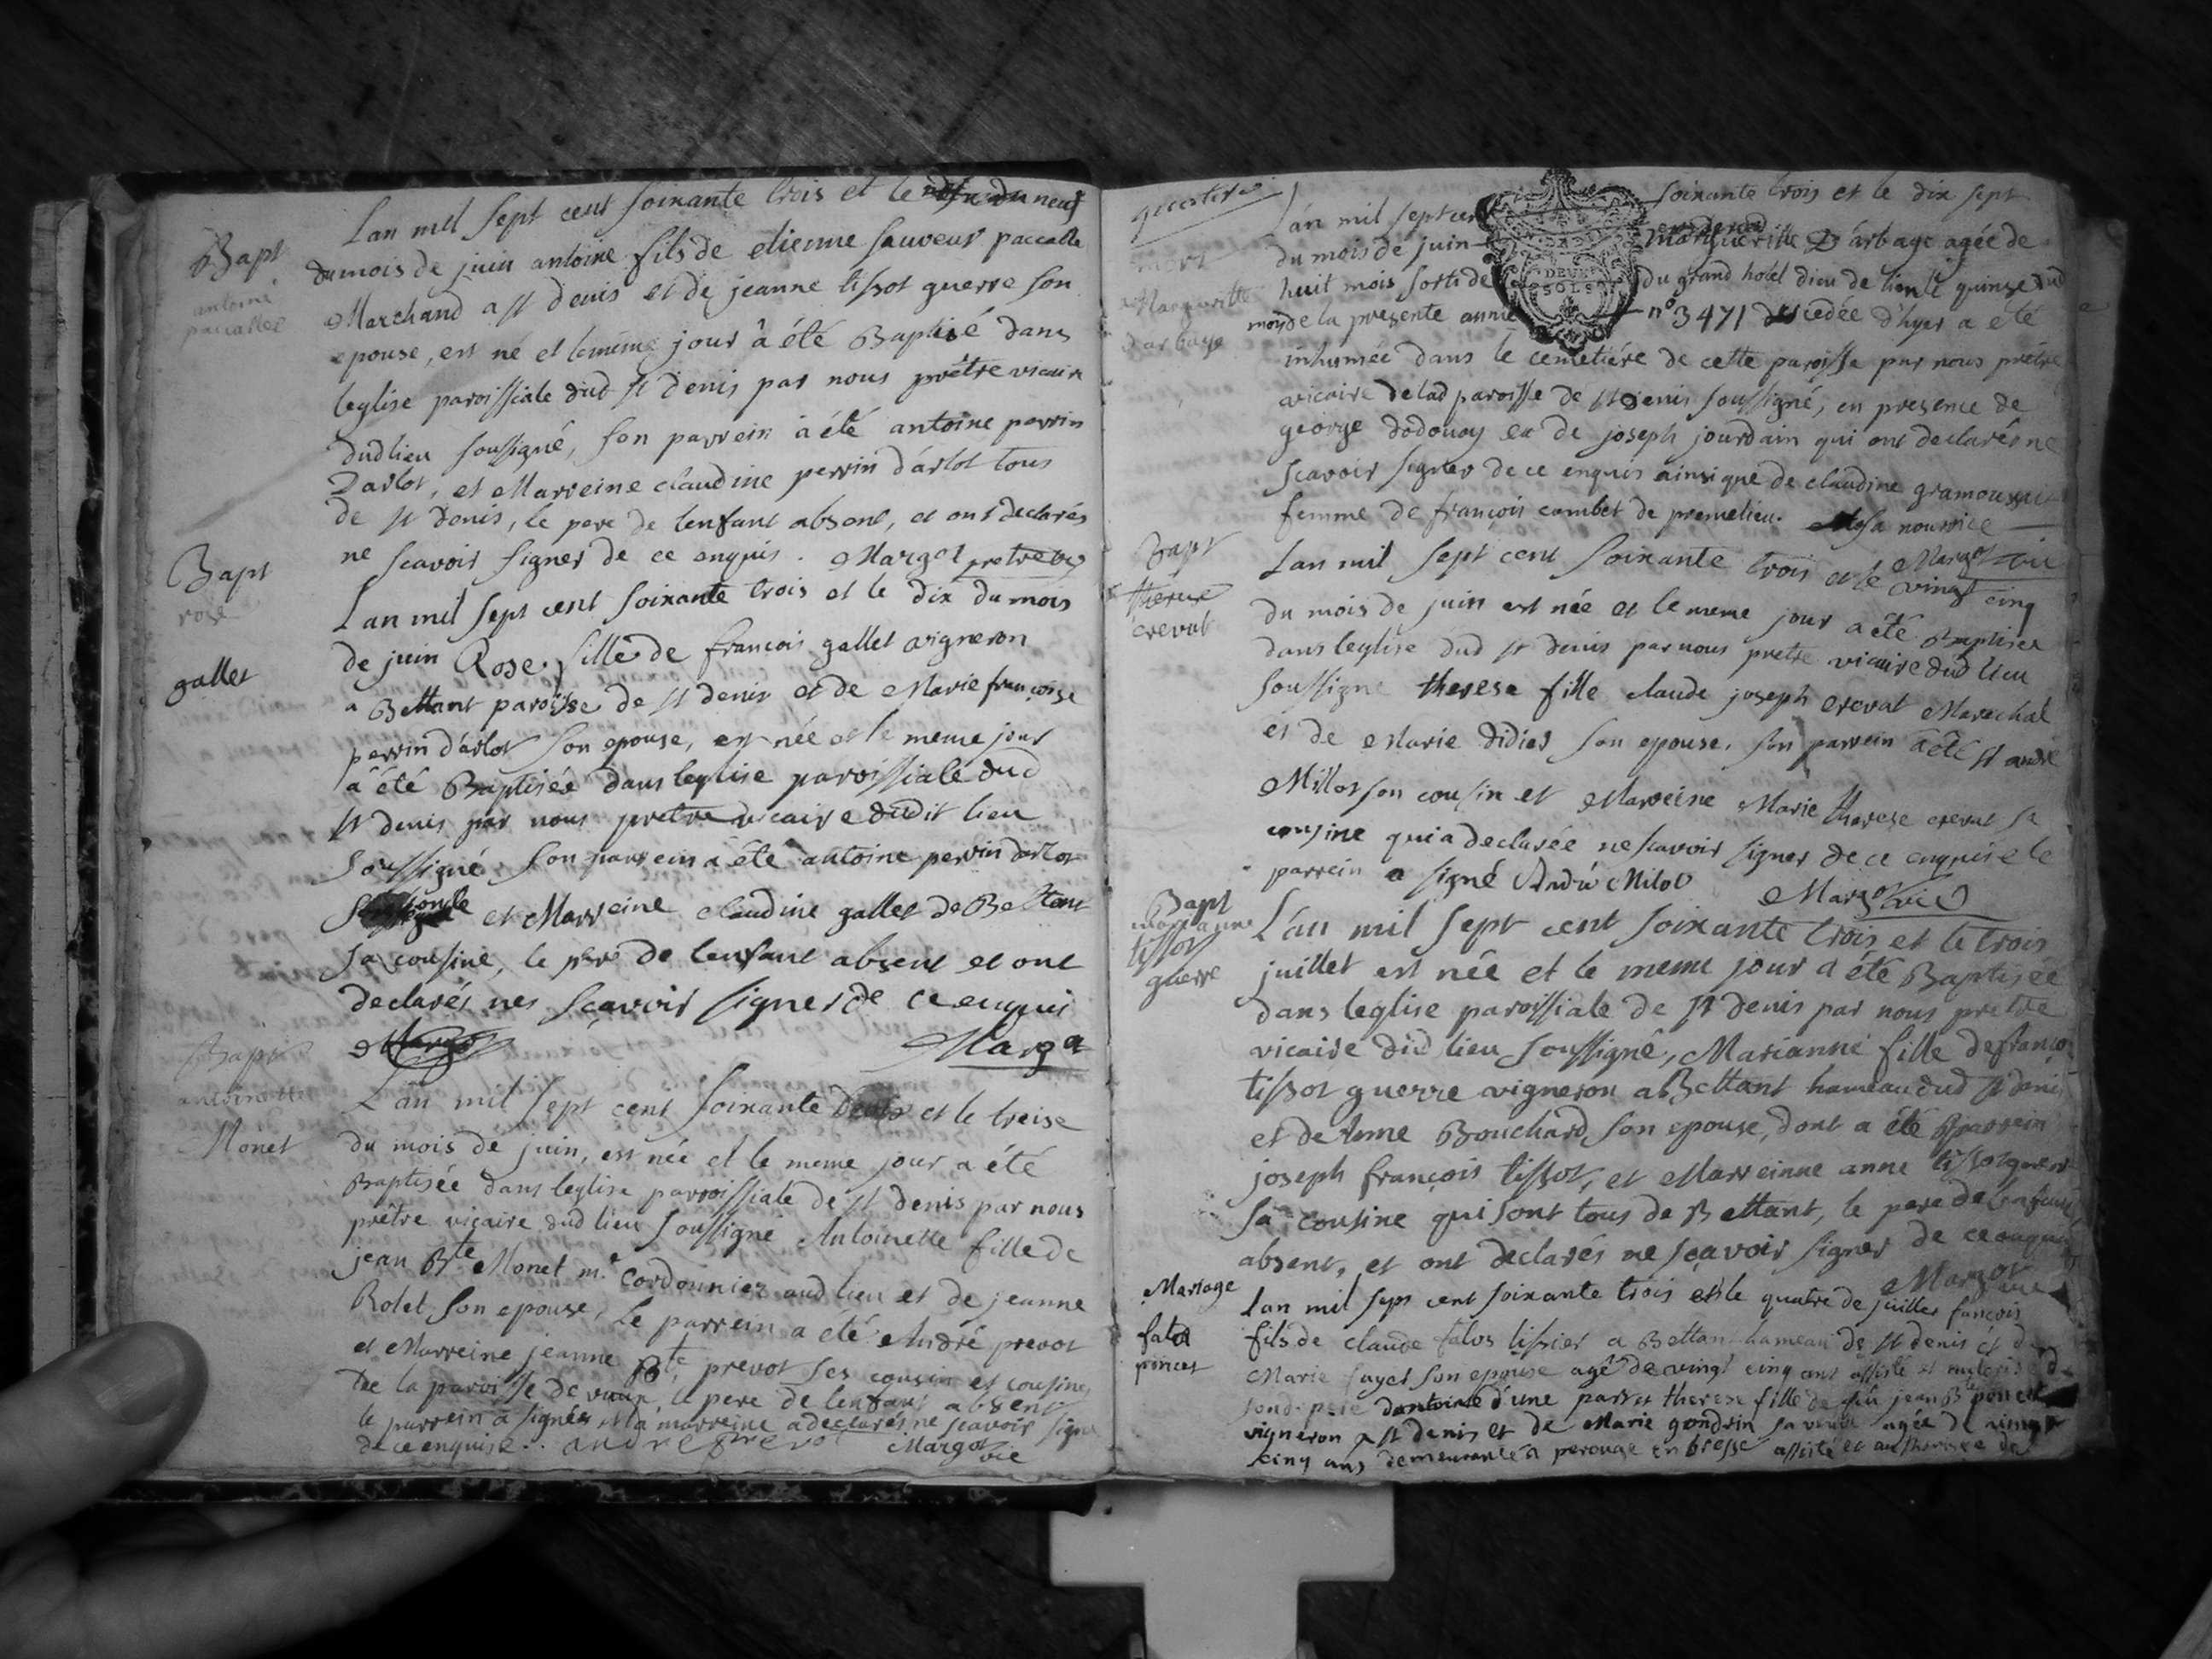 Bapt
antoine
paccallet
Lan mil sept cent soixante trois et le neuf
du mois de juin antoine fils de etienne sauveur paccallet
Marchand a st denis et de jeanne tissot guerre son
epouse, est né et le meme jour à été Baptisé dans
leglise paroissiale dud st denis par nous prêtre vicaire
dud lieu soussigné, son parrein à été antoine perrin
Darlot, et Marreine claudine perrin d'arlot tous
de st denis, le pere de lenfant absent, et ont declarés
ne scavoir signer de ce enquis. Margot pretre vic
Bapt
rose
gallet
Lan mil sept cent soixante trois et le dix du mois
de juin Rose fille de françois gallet vigneron
a Bettant paroisse de st denis et de Marie françoise
perrin d'arlot son epouse, est née et le meme jour
a été Baptisée dans leglise paroissiale dud
st denis par nous pretre vicaire dudit lieu
soussigné son parrein a été antoine perrin darlot
son oncle et Marreine claudine gallet de Bettant
sa cousine, le pere de lenfant absent et ont
declarés nes scavoir signer de ce enquis
Margot Margot
Bapt
antoinette
Monet
L'an mil sept cent soixante et le treise
du mois de juin, est née et le meme jour a été
Baptisée dans leglise parroissiale de st denis par nous
prêtre vicaire dud lieu soussigné Antoinette fille de
jean Bte Monet me cordonnier aud lieu et de jeanne
Rolet son epouse, le parrein a été André prevot
et Marreine jeanne Bte prevot ses cousin et cousine
de la paroisse de vaux, le pere de lenfant absent
le parrein a signés et la marreine a declarés ne scavoir signer
de ce enquise. andre prevot Margot vic
mort
Margueritte
d'arbage
L'an mil sept cent soixante trois et le dix sept
du mois de juin Marguerille D'arbage agée de
DEUX
SOLS
huit mois sorti de du grand hotel dieu de lion le quinse dud
mois de la presente année n° 3471 decedée d'hyer a été
inhumée dans le cemetiére de cette paroisse par nous prêtre
vicaire de lad paroisse de st denis soussigné, en presence de
george dodouay et de joseph jourdain qui ont declarés ne
scavoir signer de ce enquis ainsi que de claudine
femme de françois combet de premelieu. sa nourrice
Margot vic
Bapt
therese
crevat
Lan mil sept cent soixante trois et le vingt cinq
du mois de juin est née et le meme jour a été Baptisée
dans leglise dud st denis par nous pretre vicaire dud lieu
soussigné therese fille claude joseph crevat Marechal
et de Marie didier son epouse. son parrein a été st andré
Millot son cousin et Marreine Marie therese crevat sa
cousine qui a declarée ne scavoir signer de ce enquise le
parrein a signé André Milot Margot vic
Bapt
marianne
tissot
guerre
L'an mil sept cent soixante trois et le trois
juillet est née et le meme jour a été Baptisée
dans leglise paroissiale de st denis par nous pretre
vicaire dud lieu soussigné, Marianne fille de françois
tissot guerre vigneron a Bettant hameau dud st denis
et de Anne Bouchard son epouse, dont a été parrein
joseph françois tissot, et Marreinne anne tissot guerre
sa cousine qui sont tous de Bettant, le pere de lenfant
absent, et ont declarés ne sçavoir signer de ce enquis
Margot vic
Mariage
falot
poncet
Lan mil sept cent soixante trois et le quatre de juillet fancois
fils de claude falot tissier a Bettant hameau de st denis et de
Marie fayet son epouse agé de vingt cinq ans assisté et
sond. pere d'une part et therese fille de feu jean B poncet
vigneron a st denis et de Marie gondrin sa veuve agée de vingt
cinq ans demeurante a perouge en bresse assisté et authorisée de